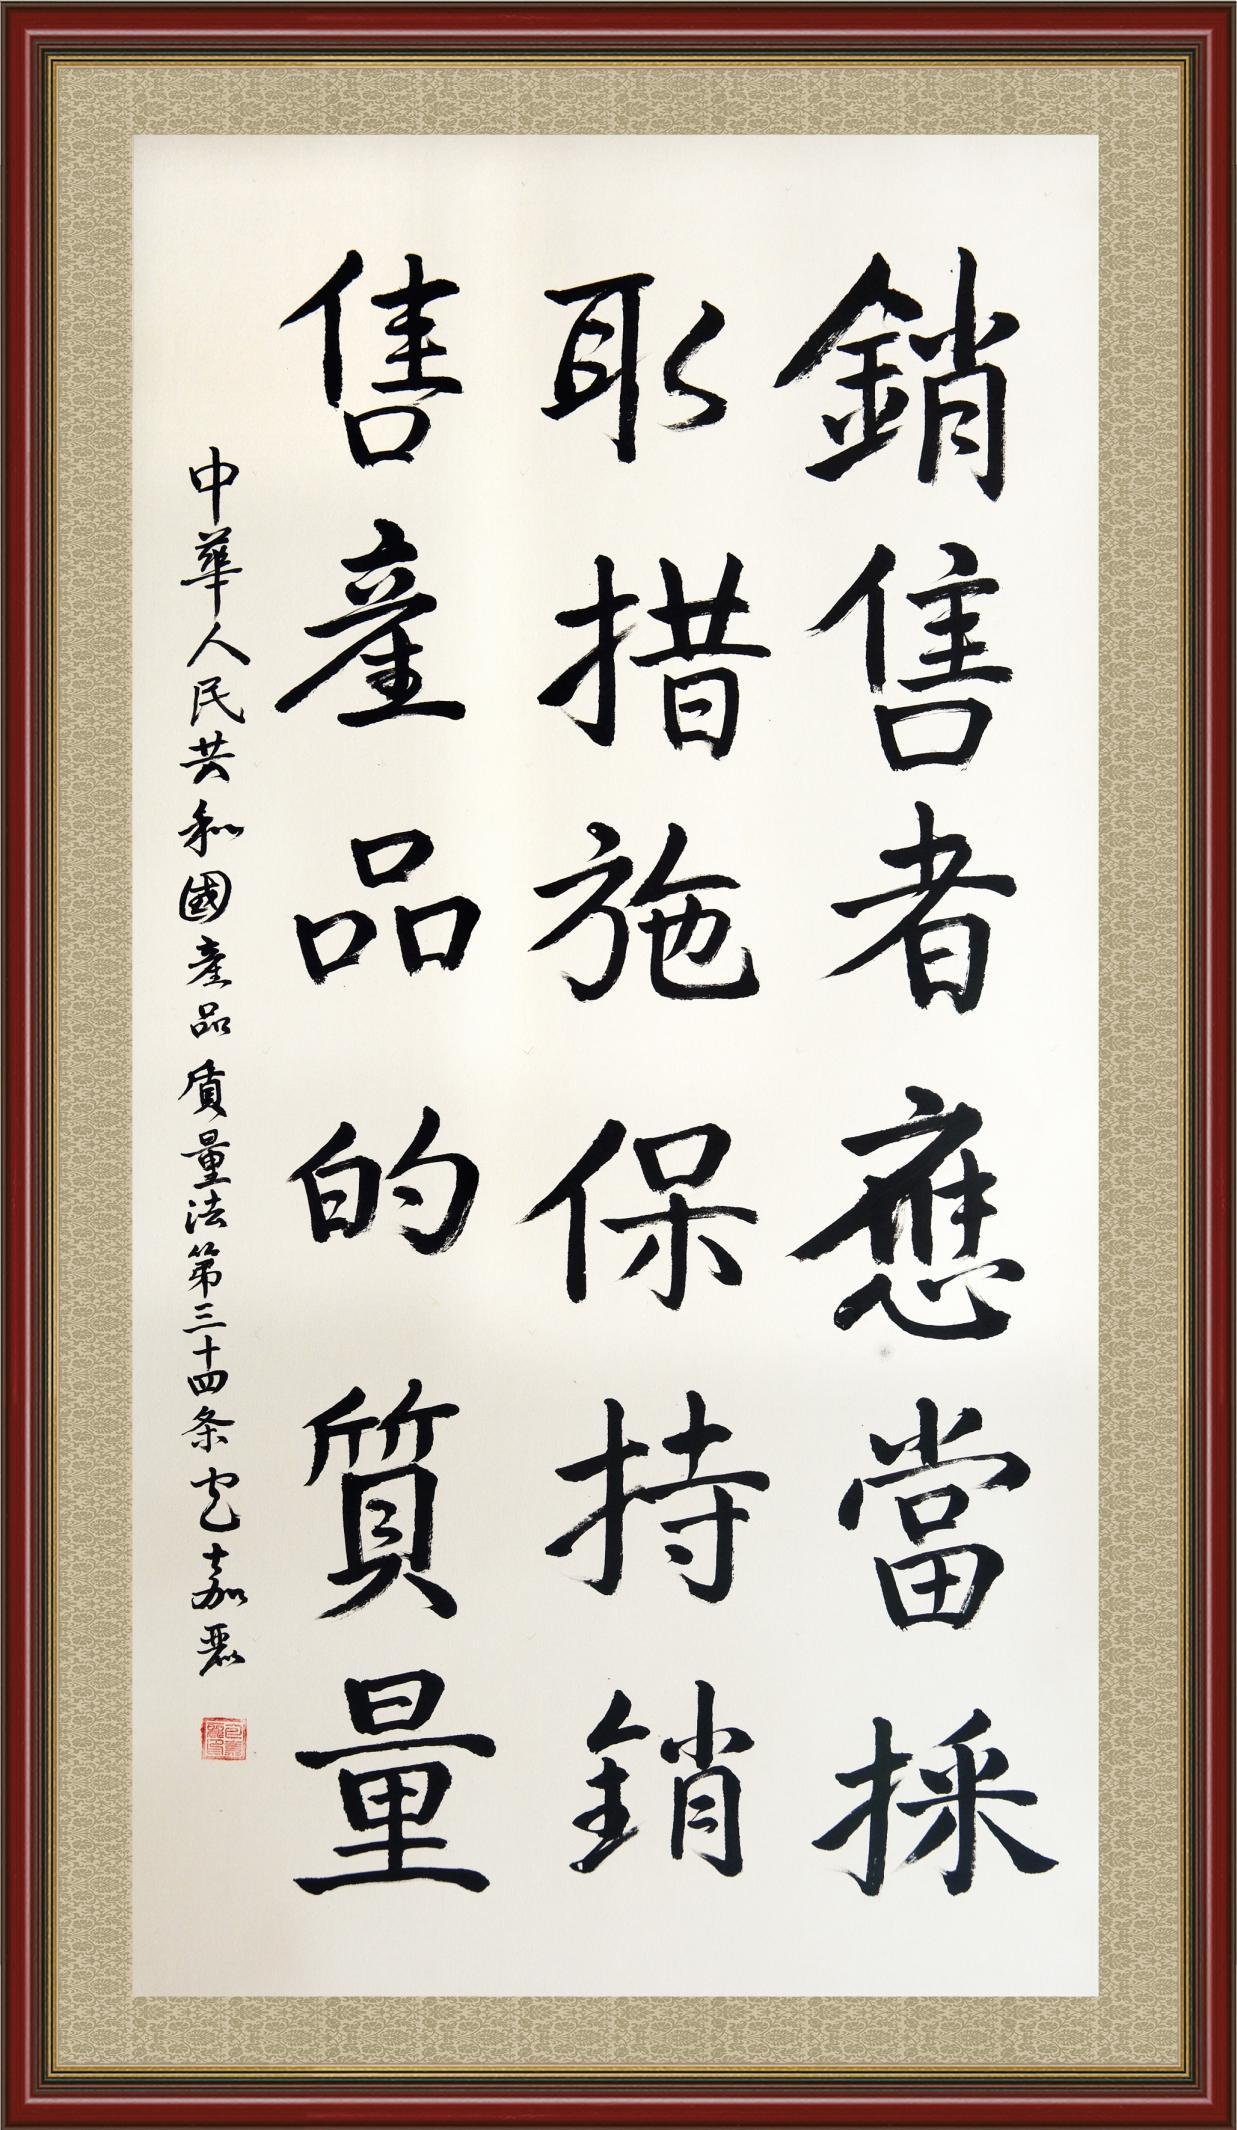 銷售者應當採
取措施保持銷
售產品的質量
中華人民共和國產品质量法第三十四条 包嘉麗